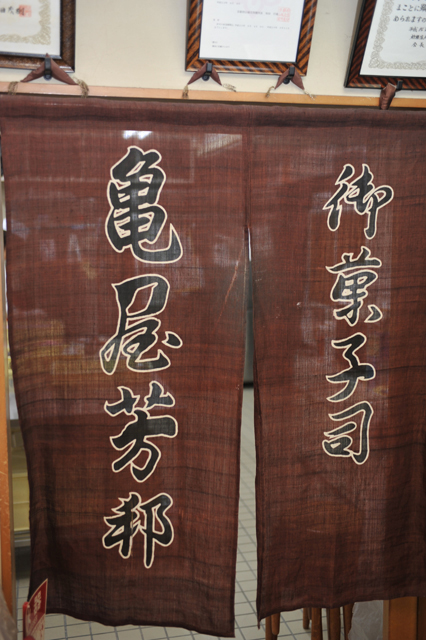 御菓子司
亀屋芳邦